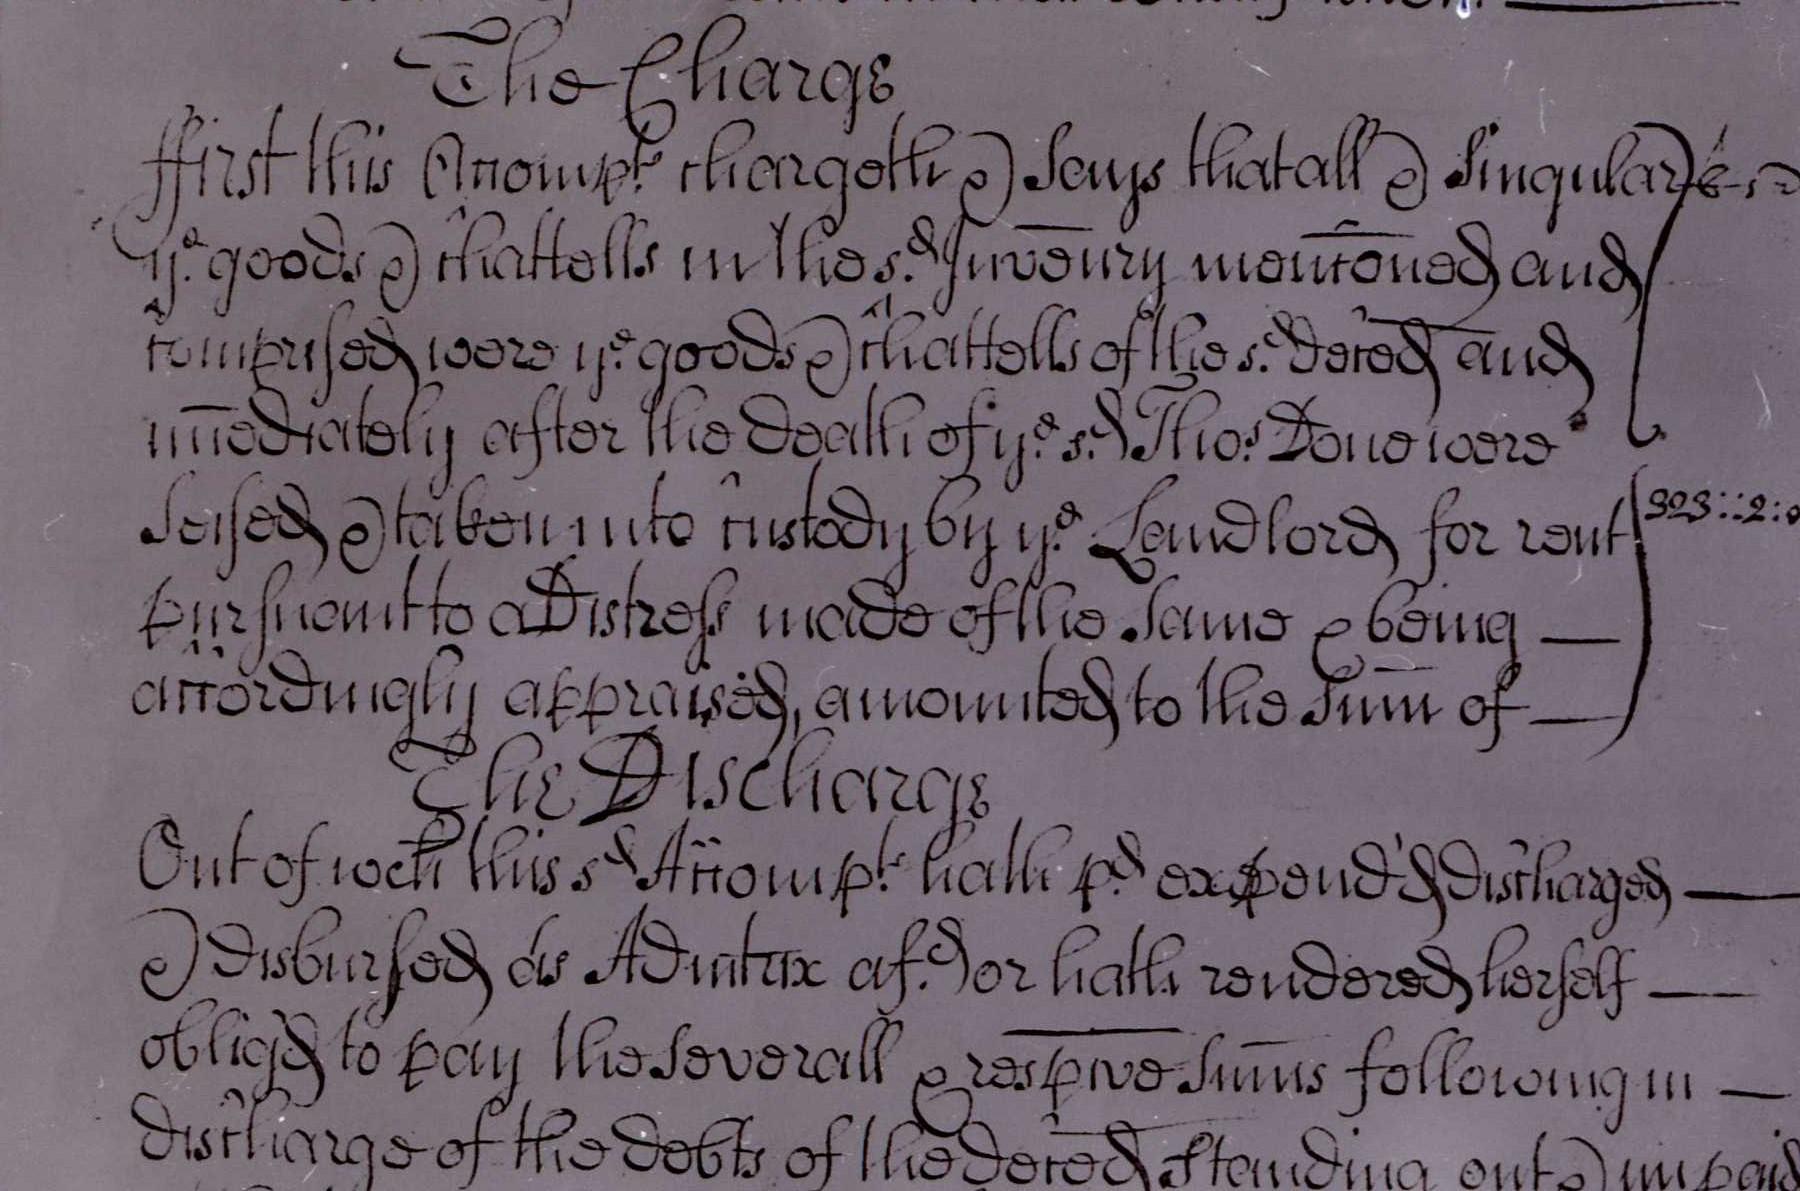 The Charge
ffirst this Accompt.t chargeth & Says that all & Singular £ s d
y.e goods & chattells in the s.d Inven̄ry menc̄oned and
comprised were y.e goods & chattells of the s.d dec̄ed and
im̄ediately after the death of y.e s.d Tho.s Done were
Seised & taken into custody by y.e Landlord for rent 323::2:0
pursuant to a Distress made of the Same & being —
accordingly appraised, amounted to the Sum̄ of —
The Discharge
Out of wch this s.d Accomp.t hath p.d expend'd discharged —
& disbursed as Admtrix afs.d or hath rendered herself —
oblig'd to pay the Severall & respīve Sum̄s following in —
discharge of the debts of the dec̄ed Standing out & unpaid